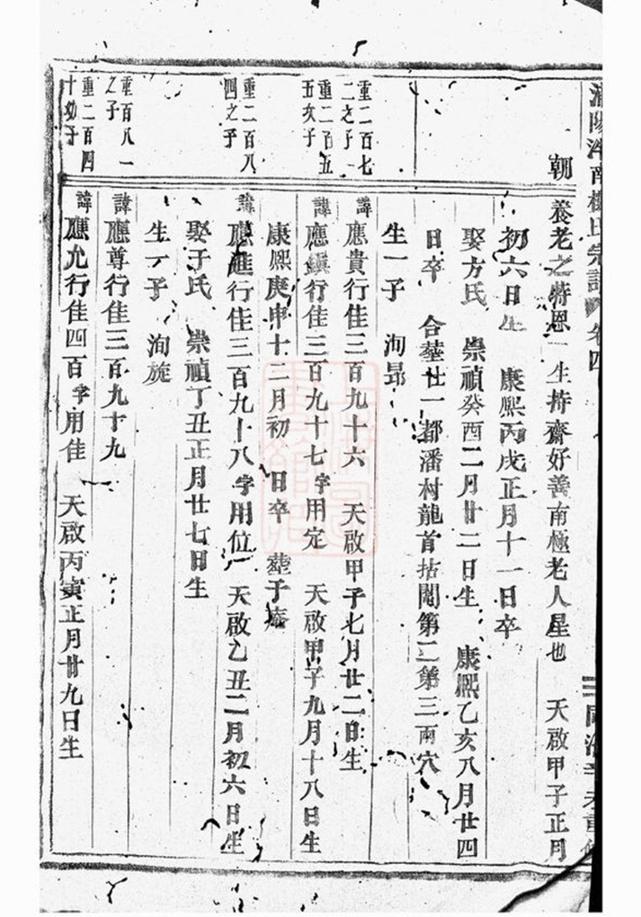 宗譜 卷四
朝
養老之特恩一生持齋好善南極老人星也 天啟甲子正月
初六日生 康熙丙戌正月十一日卒
娶方氏 崇禎癸酉二月廿二日生 康熙乙亥八月廿四
日卒 合塟廿一都潘村龍首拈鬮第二第三兩穴
生一子 洵昂
重二百七
二之子
諱應貴行佳三百九十六 天啟甲子七月廿二日生
重二百五
五次子
諱應鎮行佳三百九十七字用定 天啟甲子九月十八日生
康熙庚申十二月初 日卒 塟于
重二百八
四之子
諱應進行佳三百九十八字用位 天啟乙丑二月初六日生
娶于氏 崇禎丁丑正月廿七日生
生一子 洵旋
重百八一
之子
諱應尊行佳三百九十九
重二百四
十幼子
諱應允行佳四百字用佳 天啟丙寅正月廿九日生